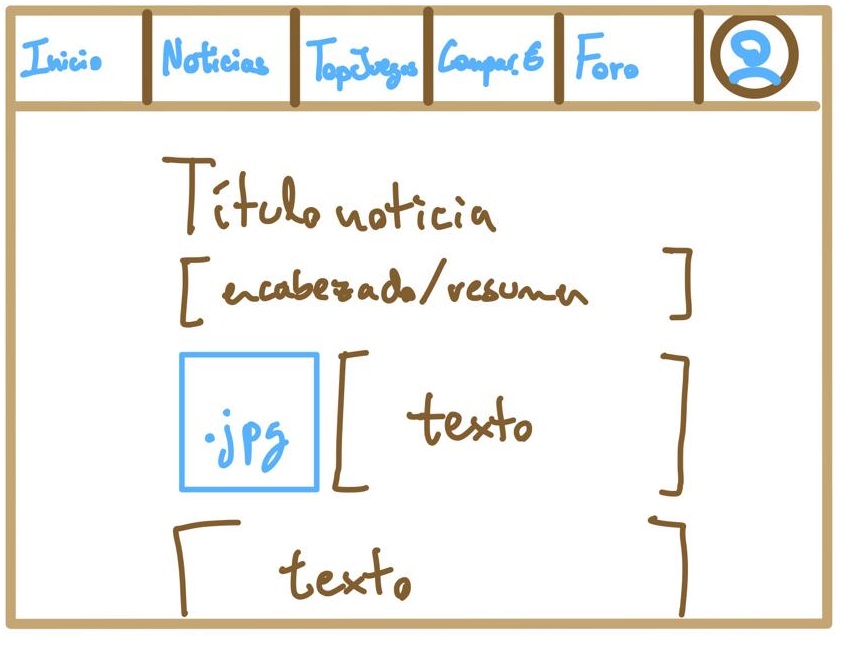 Inicio Noticias TopJuegos Compar.€ Foro
Título noticia
[encabezado/resumen]
.jpg [texto]
texto